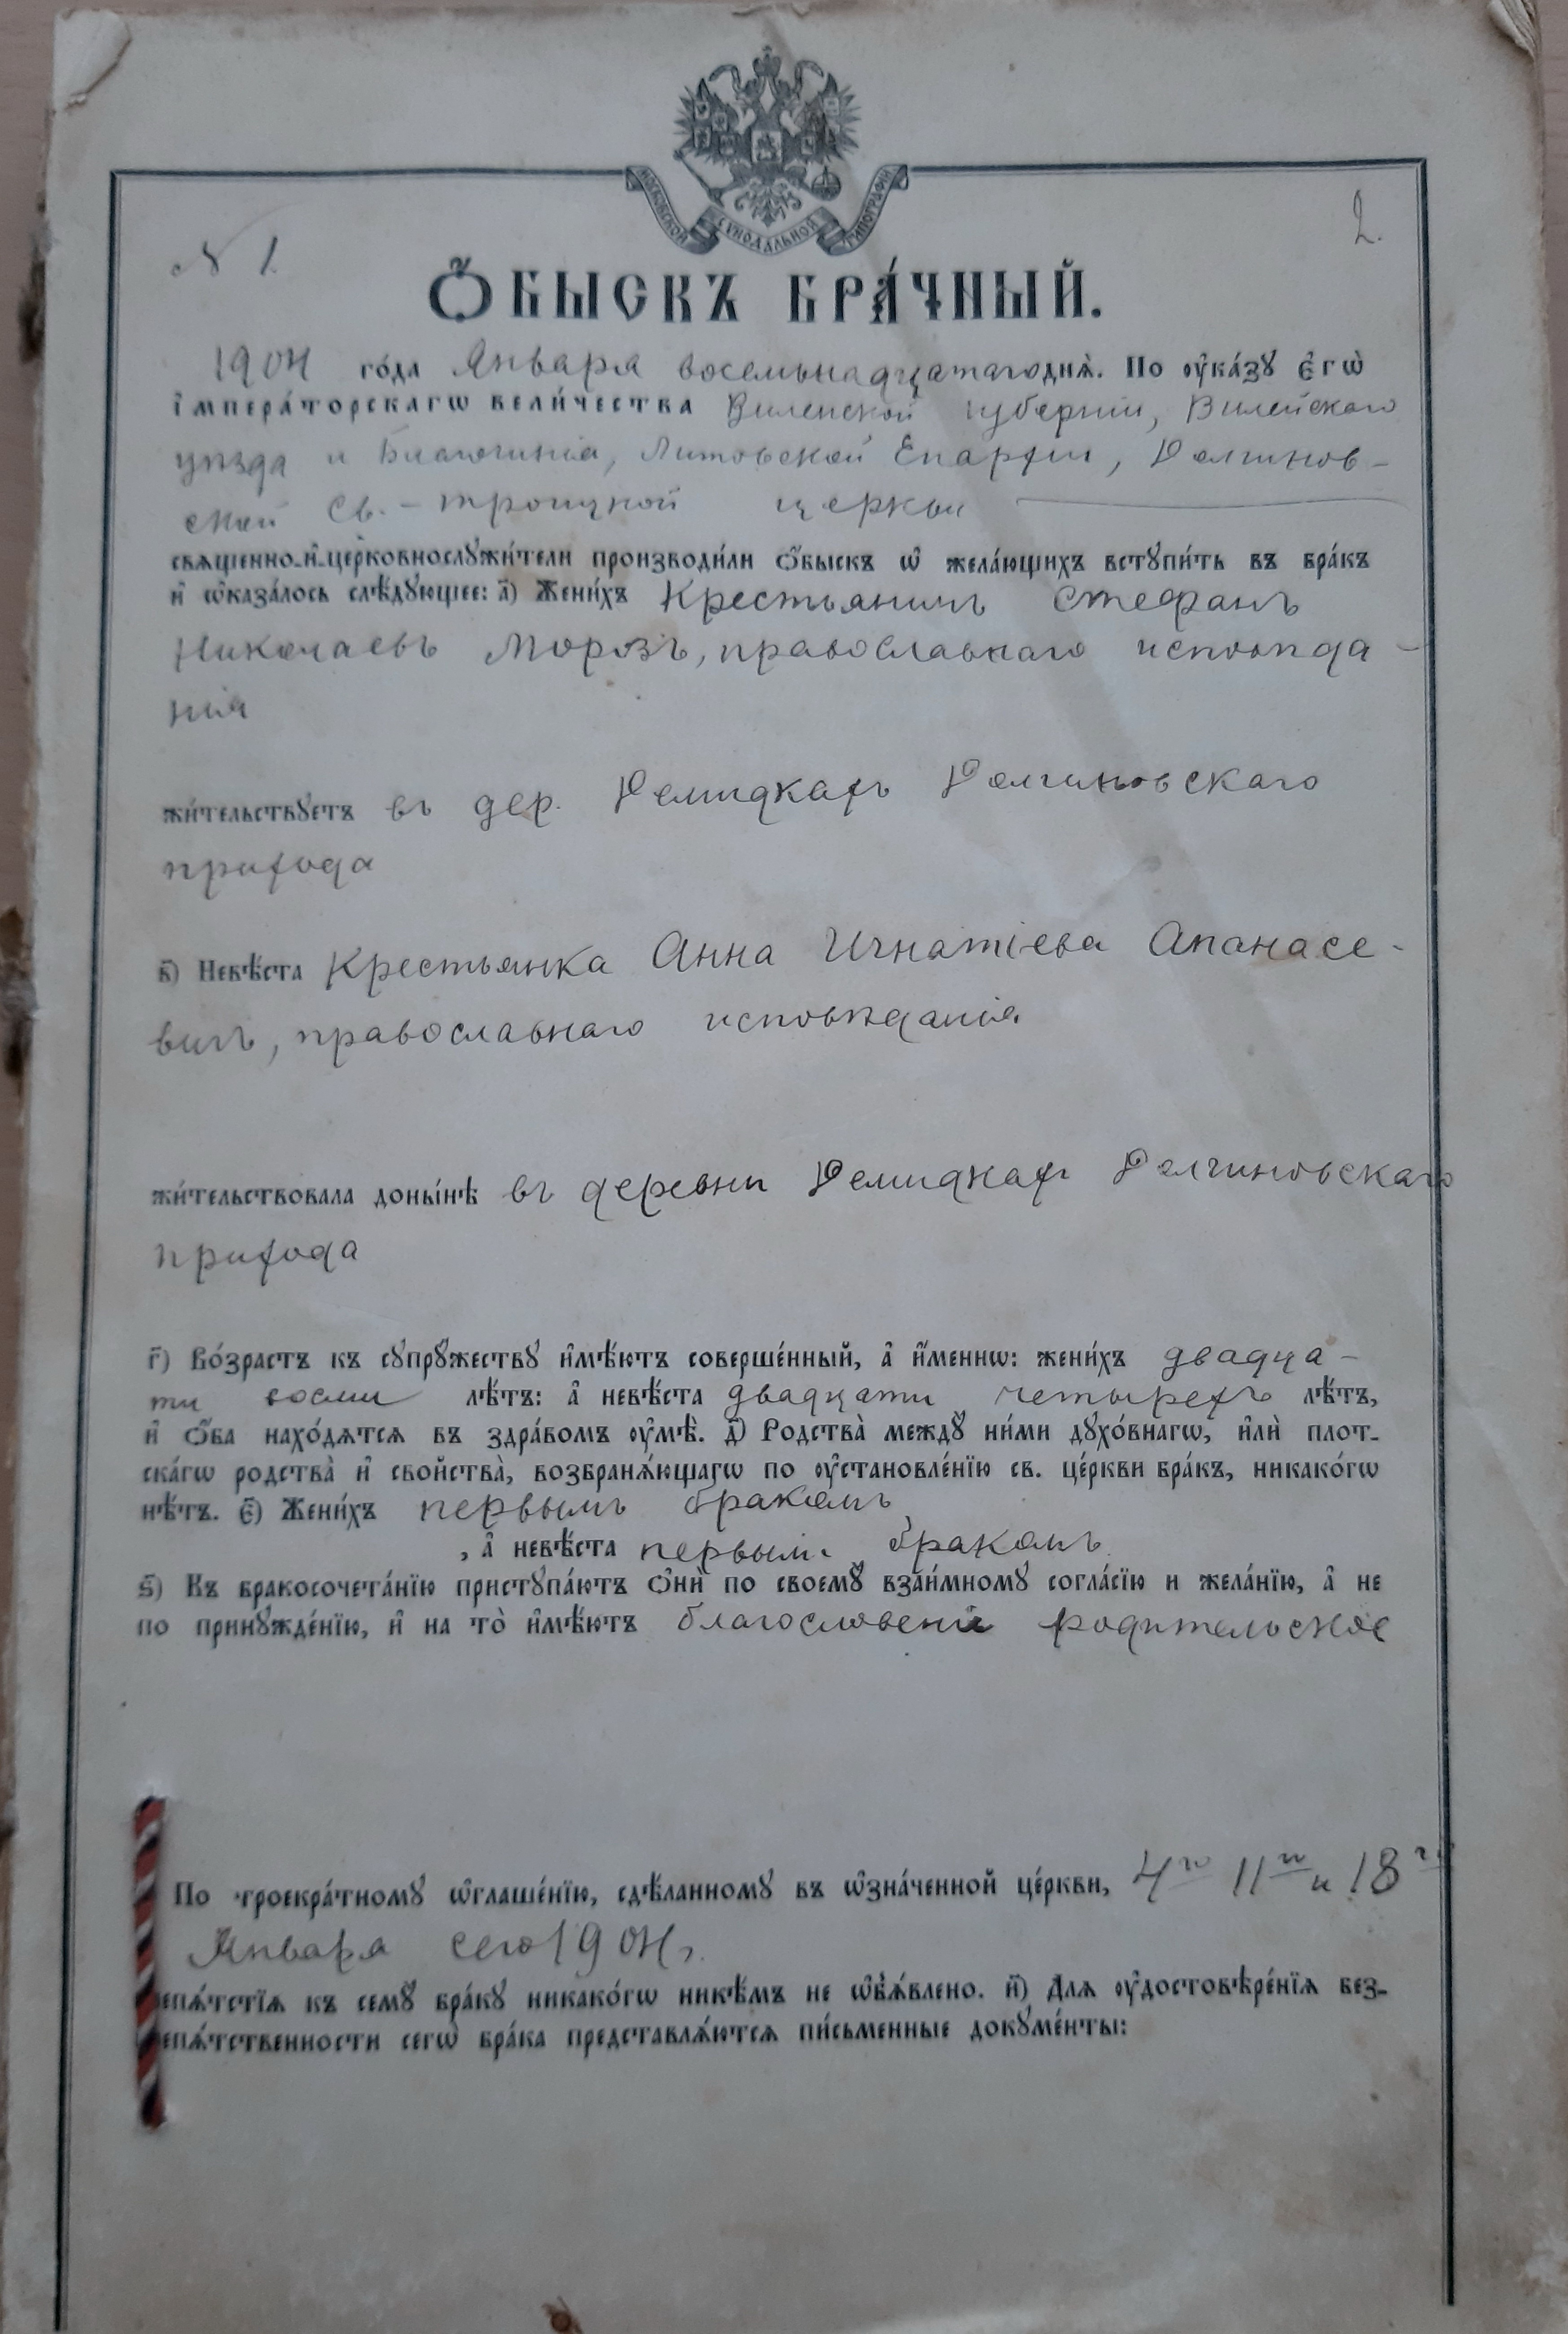 МОСКОВСКОЙ СѴНОДАЛЬНОЙ ТИПОГРАФІИ
N 1.
2.
Ѻ҆БЫСКЪ БРА́ЧНЫЙ.
1904 го́да Января восемьнадцатаго дня̀. По ᲂу҆ка́зꙋ є҆гѡ̀
і҆мпера́торскагѡ вели́чества Виленской губерніи, Вилейскаго
уѣзда и Благочинія, Литовской Епархіи, Долгинов-
ской Св.-Троицкой церкви
свѧще́нно-и҆-церковнослꙋжи́тели производи́ли ѻ҆́быскъ ѡ҆ жела́ющихъ встꙋпи́ть въ бра́къ
и҆ ѡ҆каза́лось слѣ́дꙋющее: а҃) Жени́хъ Крестьянинъ Стефанъ
Николаевъ Морозъ, православнаго исповѣда-
нія
жи́тельствꙋетъ въ дер. Демидкахъ Долгиновскаго
прихода
в҃) Невѣ́ста Крестьянка Анна Игнатіева Апанасе-
вичъ, православнаго исповѣданія
жи́тельствовала доны́нѣ въ деревни Демидкахъ Долгиновскаго
прихода
г҃) Во́зрастъ къ сꙋпрꙋ́жествꙋ и҆мѣ́ютъ соверше́нный, а҆ и҆́меннѡ: жени́хъ двадца-
ти восми лѣ́тъ: а҆ невѣ́ста двадцати четырехъ лѣ́тъ,
и҆ ѻ҆́ба нахо́дѧтсѧ въ здра́вомъ ᲂу҆мѣ̀. д҃) Родства̀ междꙋ̀ ни́ми дꙋхо́внагѡ, и҆лѝ плот-
ска́гѡ родства̀ и҆ свойства̀, возбранѧ́ющагѡ по ᲂу҆становле́нїю св. це́ркви бра́къ, никако́гѡ
нѣ́тъ. є҃) Жени́хъ первымъ бракомъ
, а҆ невѣ́ста первымъ бракомъ
ѕ҃) Къ бракосочета́нїю пристꙋпа́ютъ ѻ҆нѝ по своемꙋ̀ взаи́мномꙋ согла́сїю и жела́нїю, а҆ не
по принꙋжде́нїю, и҆ на то̀ и҆мѣ́ютъ благословеніе родительское
По троекра́тномꙋ ѡ҆глаше́нїю, сдѣ́ланномꙋ въ ѡ҆зна́ченной це́ркви, 4го 11го и 18го
Января сего 1904 г.
епѧ́тствїѧ къ семꙋ̀ бра́кꙋ никако́гѡ никѣ́мъ не ѡ҆б̾ѧ́влено. и҃) Для ᲂу҆достовѣре́нїѧ без-
епѧ́тственности сегѡ̀ бра́ка представлѧ́ютсѧ пи́сьменные докꙋме́нты: